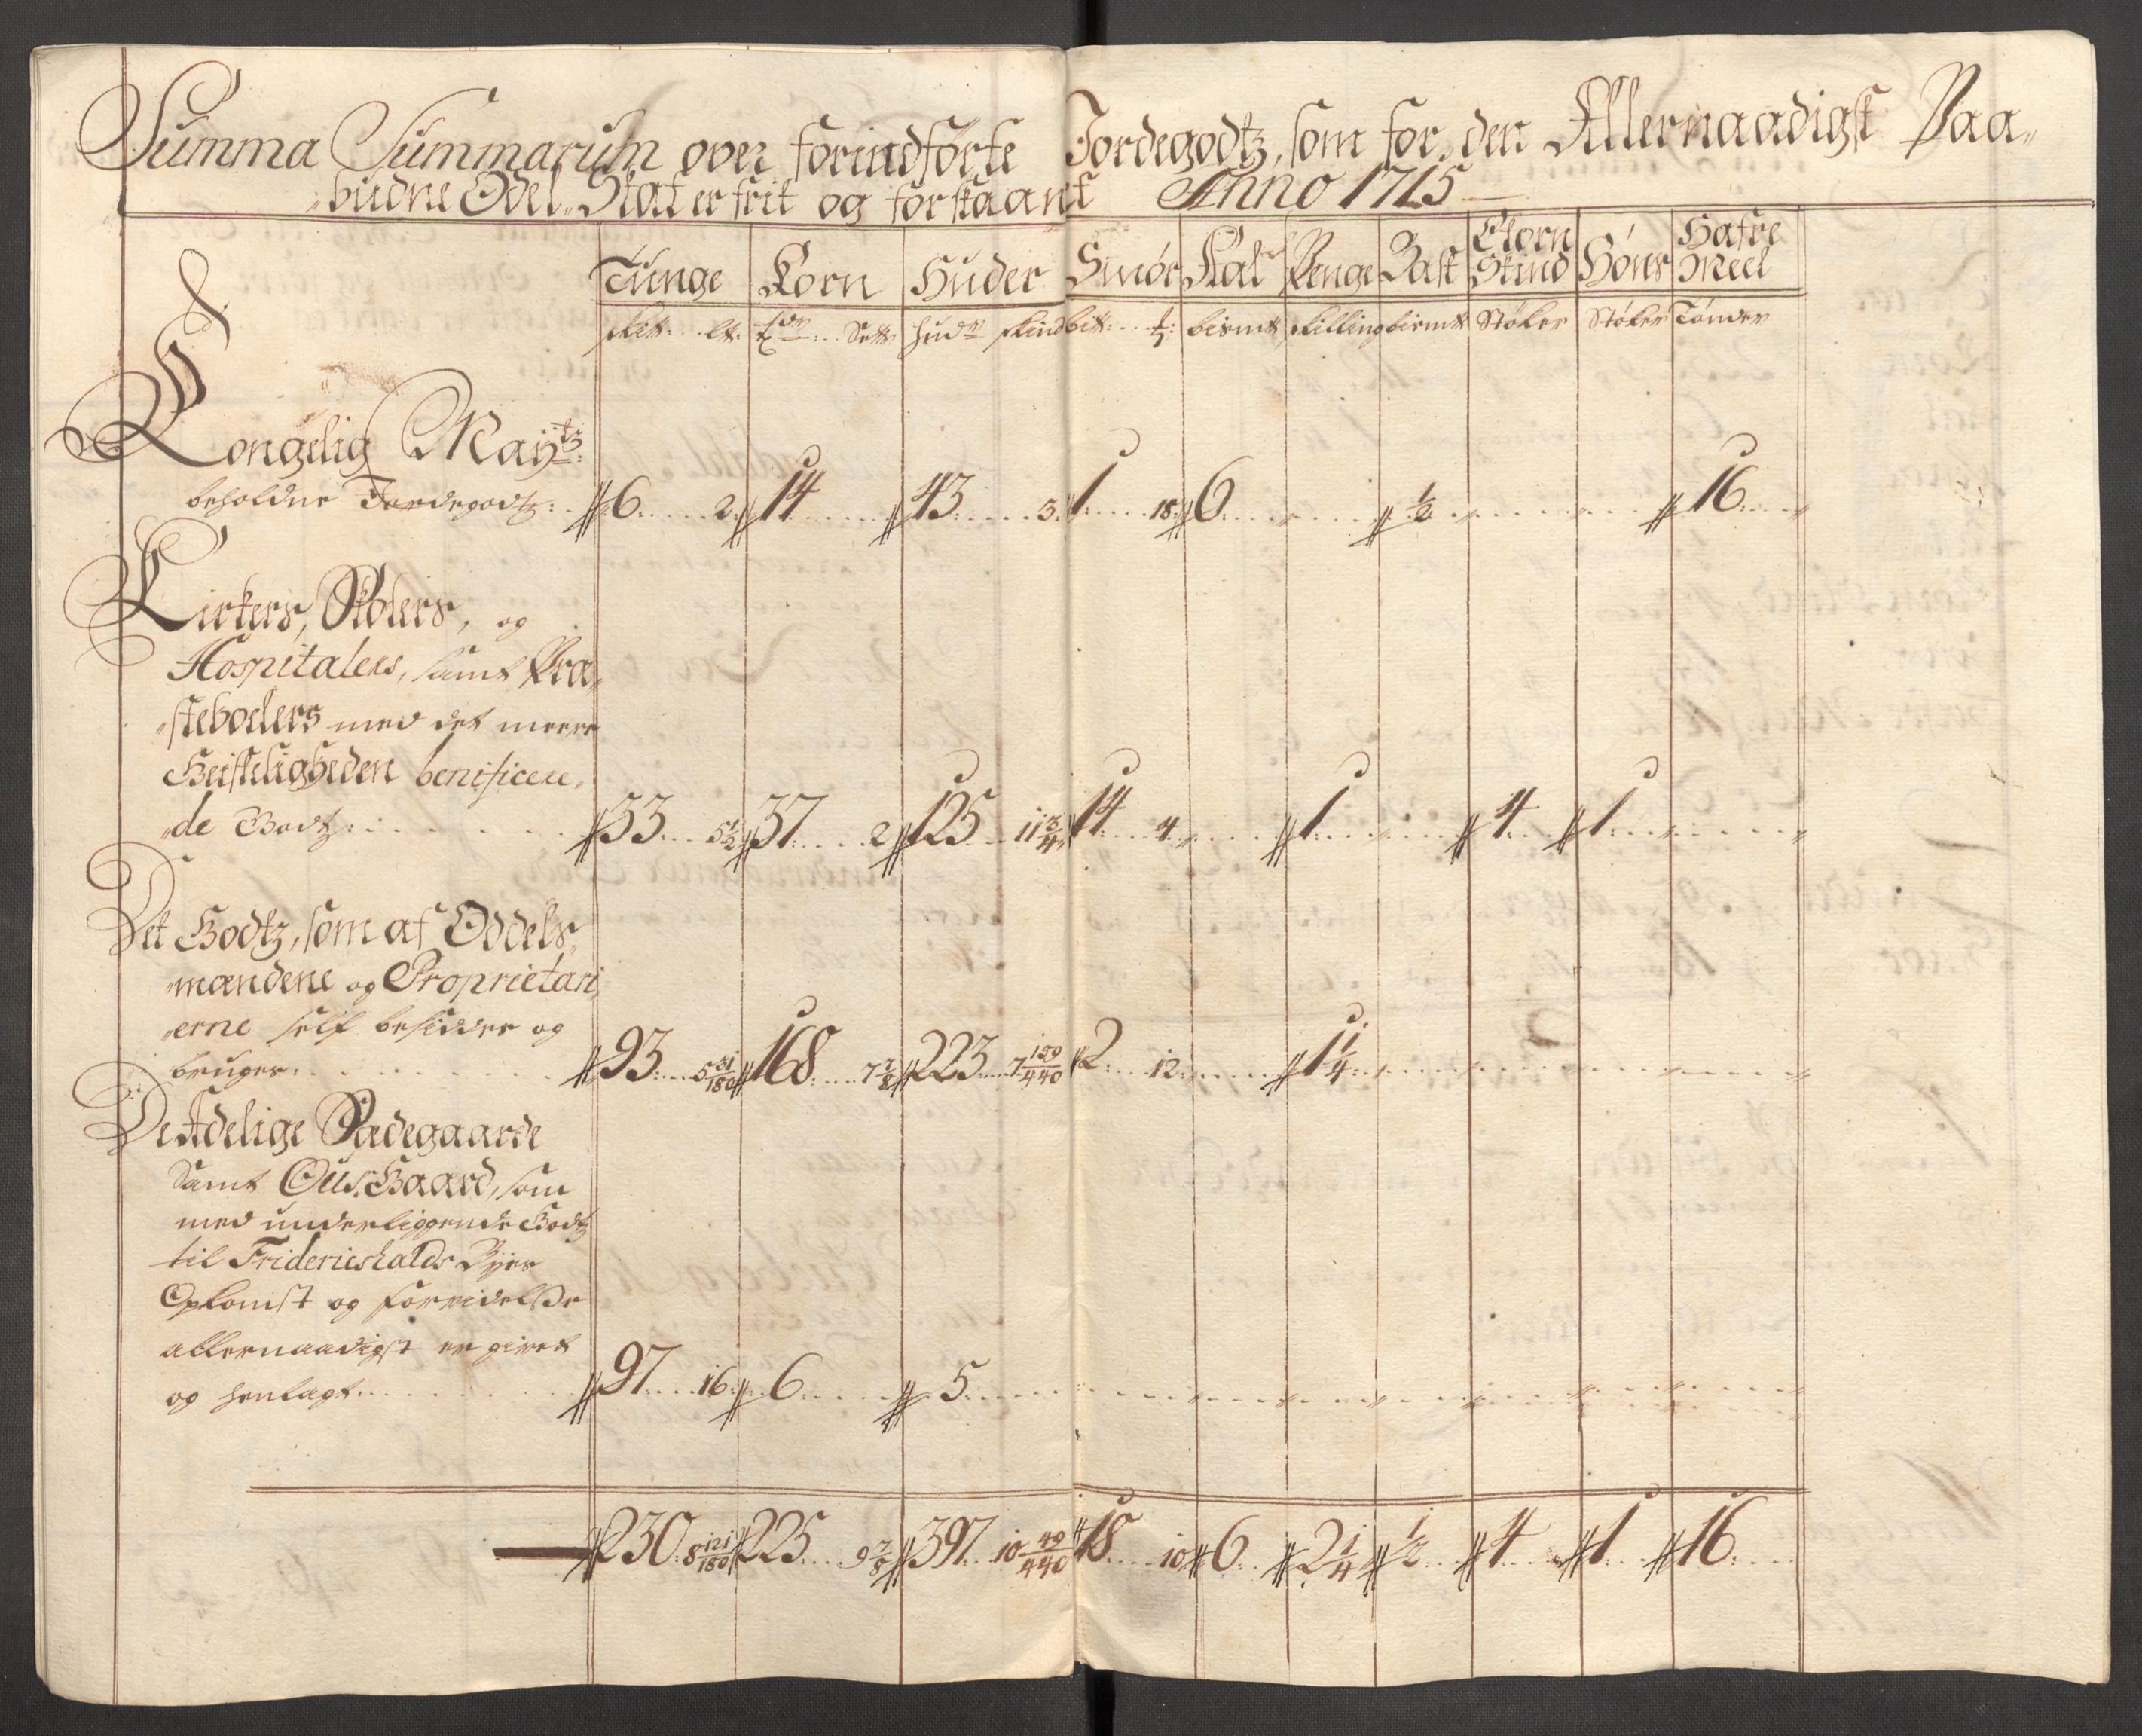 Summa Summarum over forindførte Jordegodtz, som for den Allernaadigst Paa„
„budne Odel„Skat er frit og forskaant Anno 1715
Tunge Korn Huder Smør Kal Penge Bast Giørn Skind Høns Hafre Meel
skt: lt: Sett: Hudr skind bit: bismt skilling bismt Støker Støker Tønder
Kongelig Maÿtz:
beholdne Jordegodtz: 6 2 14 43 3 1 18 6 1/2 16
Kirkers, Skolers, og
Hospitalers, samt Præ„
„steboelers med det meere
Geisteligheden benificere„
„de Godtz: 33 5 1/2 37 2 125 11 3/4 14 4 1 4 1
Det Godtz, som af Oddels„
„mændene og Proprietari„
„erne self besidder og
bruger 93 5 31/180 168 7 7/8 223 7 159/440 2 12 1 1/4
De Adelige Sædegaarde
Samt Ous Gaard, som
med underliggende Godtz
til Fridericshalds Byes
Opkomst og forridelsse
allernaadigst er givet
og henlagt 97 16 6 5
230 8 121/180 225 9 7/8 397 10 49/440 18 10 6 2 1/4 1/2 4 1 16